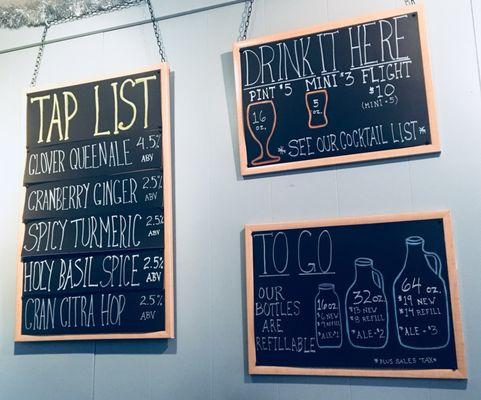 TAP LIST
CLOVER QUEENALE 4.5% ABV
CRANBERRY GINGER 2.5% ABV
SPICY TURMERIC 2.5% ABV
HOLY BASIL SPICE 2.5% ABV
CRAN CITRA HOP 2.5% ABV
DRINK IT HERE
PINT $5 MINI $3 FLIGHT
$10
(MINI •5)
16 oz.
5 oz.
* SEE OUR COCKTAIL LIST *
TO GO
OUR
BOTTLES
ARE
REFILLABLE
16 oz.
$6 NEW
REFILL
32 oz.
$13 NEW
$8 REFILL
*ALE
64 oz.
$19 NEW
$14 REFILL
*ALE • $3
*PLUS SALES TAX